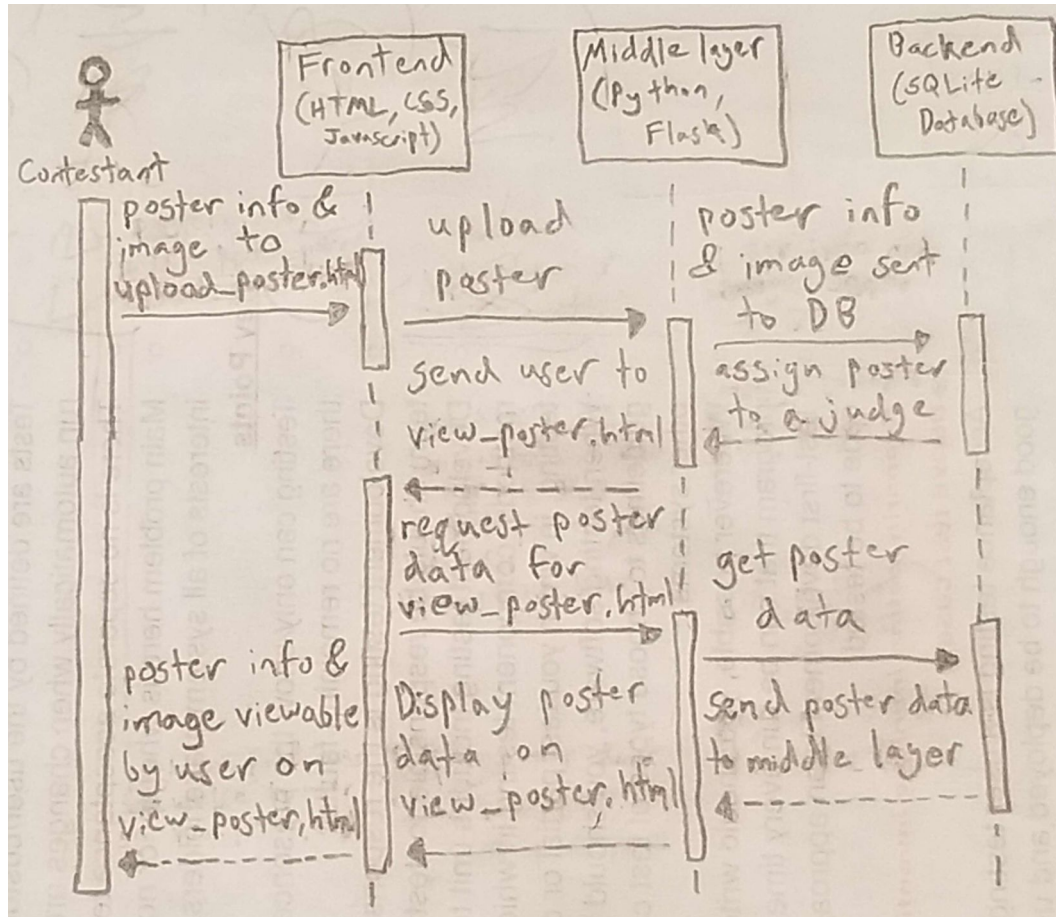 Contestant
Frontend
(HTML, CSS,
Javascript)
Middle layer
(Python,
Flask)
Backend
(SQLite
Database)
poster info &
image to
upload_poster.html
upload
poster
poster info
& image sent
to DB
assign poster
to a judge
send user to
view_poster.html
request poster
data for
view_poster.html
get poster
data
send poster data
to middle layer
Display poster
data on
view_poster.html
poster info &
image viewable
by user on
view_poster.html